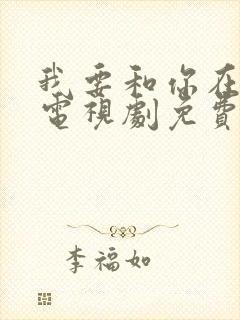 我要和你在
電視劇免費
李福如